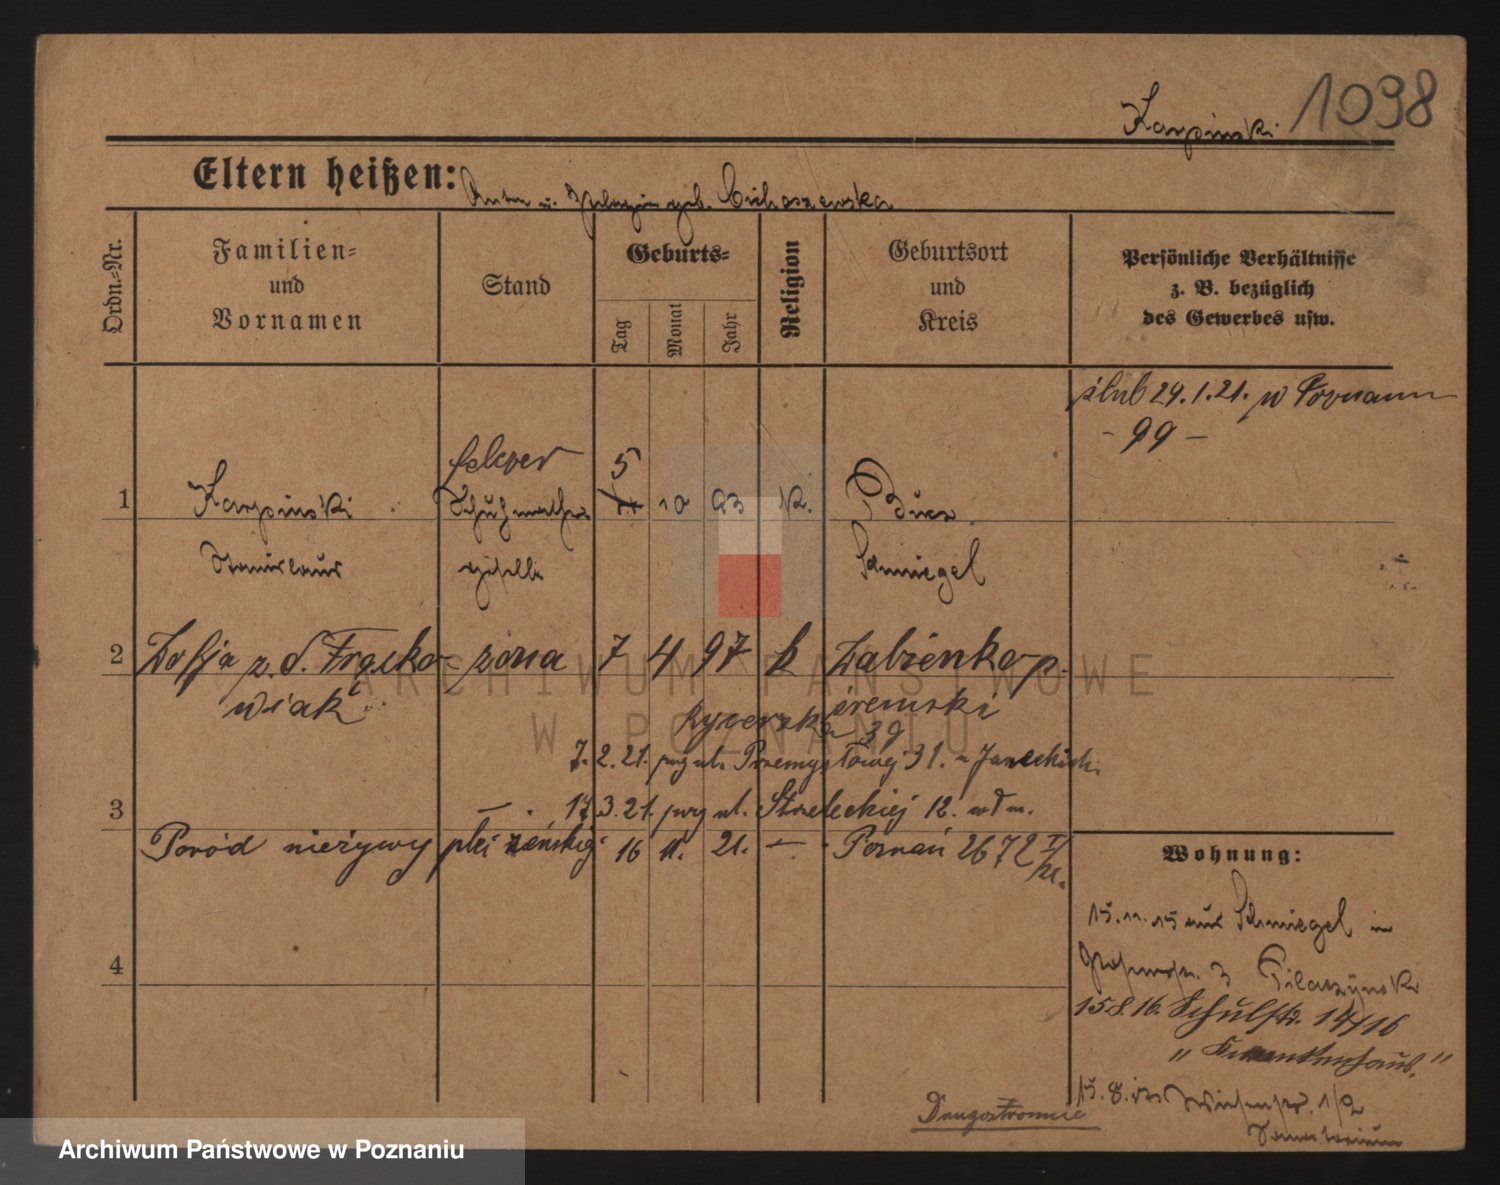 Karpinski 1098
Eltern heißen: Anton u. geb. Cichoszewska
Ordn.=Nr.
Familien=
und
Vornamen
Stand
Geburts=
Tag
Monat
Jahr
Religion
Geburtsort
und
Kreis
Persönliche Verhältnisse
z. B. bezüglich
des Gewerbes usw.
ślub 29.1.21. w Poznaniu
- 99 -
felczer 5
1 Karpinski Schuhmacher 10 93 K.
Stanislaus geselle Schmiegel
2 Zofja z.d. Frącko- żona 7 4 97 k Żabienko p.
wiak śremski
39
7.2.21. ul. Przemysłowej 31. u
3 — . 17.3.21. ul. Strzeleckiej 12.
Poród nieżywy płci żeńskiej 16 11. 21. — . Poznań 2672
Wohnung:
15.11.15 aus Schmiegel in
3
15.8.16. Schulstr. 14/16
" Krankenhaus."
4
15.8. 1/2
Drugostronnie
Sanatorium
ARCHIWUM PAŃSTWOWE
W POZNANIU
Archiwum Państwowe w Poznaniu